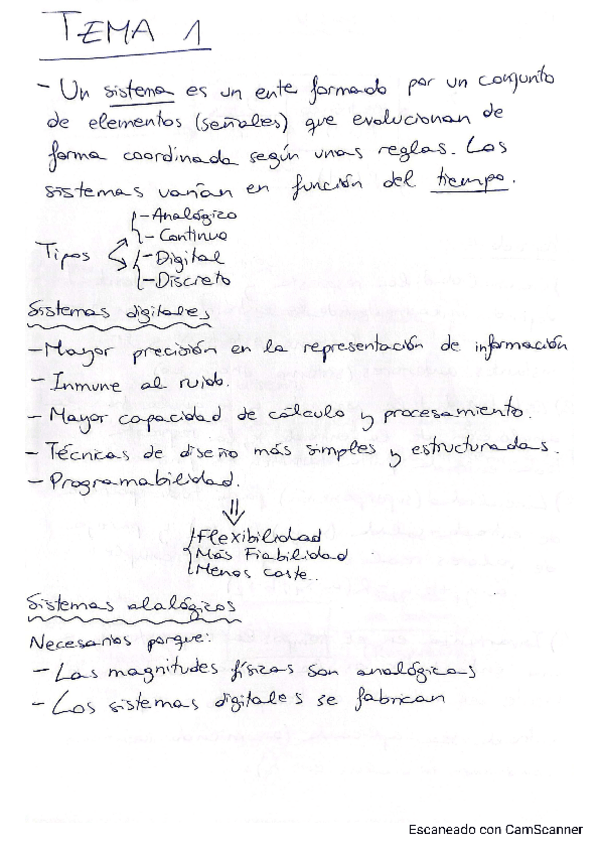 TEMA 1
- Un sistema es un ente formado por un conjunto
de elementos (señales) que evolucionan de
forma coordinada según unas reglas. Los
sistemas varían en función del tiempo.
Tipos
- Analógico
- Continuo
- Digital
- Discreto
Sistemas digitales
- Mayor precisión en la representación de información
- Inmune al ruido.
- Mayor capacidad de cálculo y procesamiento.
- Técnicas de diseño más simples y estructuradas.
- Programabilidad.
Flexibilidad
Más Fiabilidad
Menos coste..
Sistemas alalógicos
Necesarios porque:
- Las magnitudes físicas son analógicas
- Los sistemas digitales se fabrican
Escaneado con CamScanner